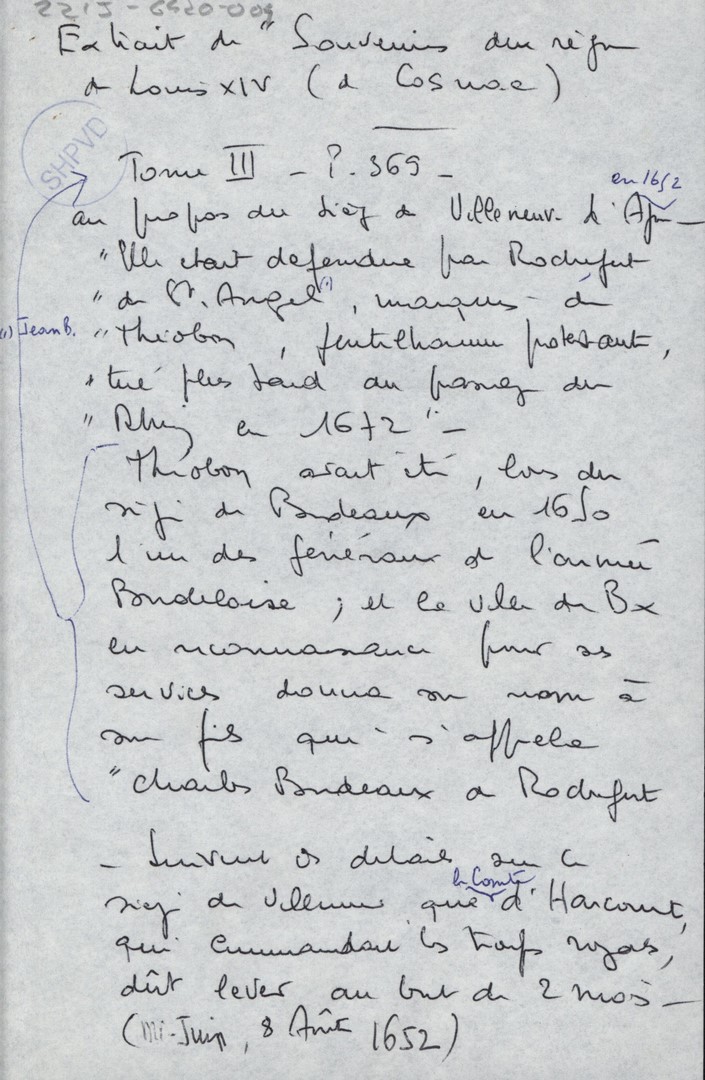 22IJ-6420-009
Extrait de "Souvenirs du règne
de Louis XIV (de Cosnac)
SHPVD
Tome III - P. 369 -
en 1652
au propos du siège de Villeneuve d'Agen -
"Elle était défendue par Rochefort
"de St. Angel (1), marquis de
(1) Jean B.
"Théobon, gentilhomme protestant,
"tué plus tard au passage du
"Rhin en 1672" -
Théobon avait été, lors du
siège de Bordeaux en 1650
l'un des généraux de l'armée
Bordelaise ; et la ville de Bx
en reconnaissance pour ses
services donna son nom à
son fils qui s'appela
"Charles Bordeaux de Rochefort
- Suivent des détails sur ce
le Comte
siège de Villeneuve que d'Harcourt,
qui commandait les troupes royales,
dût lever au bout de 2 mois -
(Mi-Juin, 8 Août 1652)